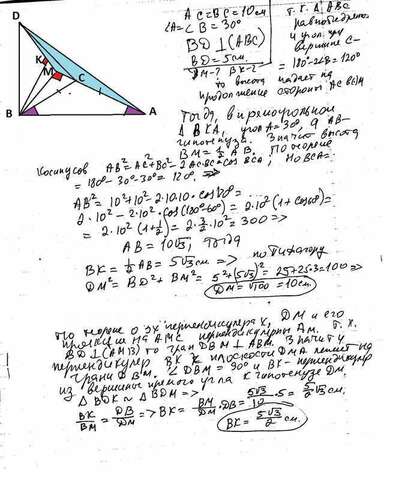 D
K
M
C
B
A
AC=BC=10см.
∠A=∠B=30°
BD⊥(ABC)
BD=5см.
DM-? BK-?
т.к. Δ ABC
равнобедрен.
и угол при
вершине C-
=180°-2∠B=120°
то высота падает на
продолжение стороны AC ВЕМ
Тогда, в прямоугольном
Δ BKA, угол A=30°, а AB-
гипотенуза. Значит высота
BM=½AB. По теореме
косинусов AB²=AC²+BC²-2AC·BC×cos BCA; ∠BCA=
=180°-30°-30°=120° =>
AB²=10²+10²-2·10·10·cos120°=
2·10²-2·10²·cos(180°-60°)=2·10²(1+cos60°)=
=2·10²(1+½)=2·3/2·10²=300 =>
AB=10√3, Тогда
BK=½AB=5√3см => по Пифагору
DM²=BD²+BM²=5²+(5√3)²=25+25·3=100 =>
DM=√100=10см.
По теореме о 3х перпендикулярах, DM и его
проекция на AMC перпендикулярны AM. Т.к.
BD⊥(AMB) то грань DBM⊥ABM. Значит
перпендикуляр BK к плоскости DMA лежит на
грани DBM. ∠DBM=90° и BK- перпендикуляр
из вершины прямого угла к гипотенузе DM.
Δ BDK ~ Δ BDM =>
BK/BM=DB/DM => BK=BM/DM·DB=5√3/10·5=5/2√3см.
BK=5√3/2см.